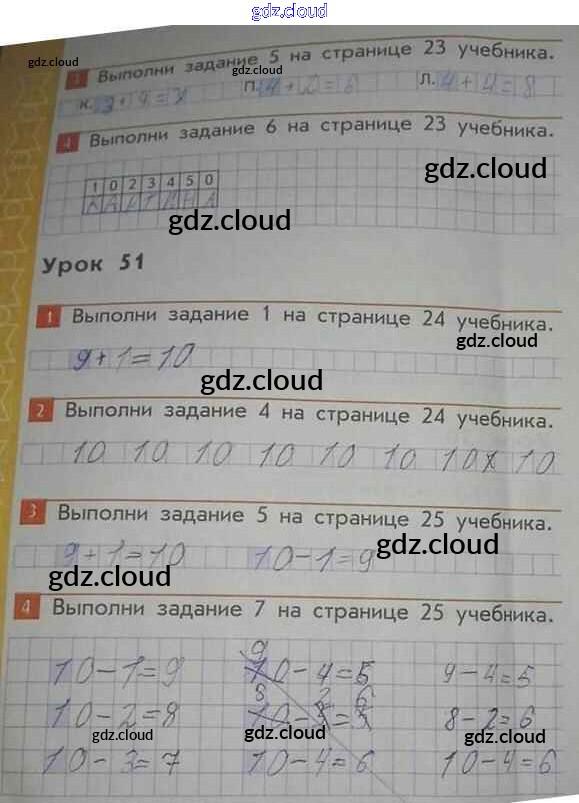 gdz.cloud
3 Выполни задание 5 на странице 23 учебника.
gdz.cloud
К. 3+4=7 П. 4+2=6 Л. 4+4=8
4 Выполни задание 6 на странице 23 учебника.
gdz.cloud
1 0 2 3 4 5 0
gdz.cloud
Урок 51
1 Выполни задание 1 на странице 24 учебника.
gdz.cloud
9+1=10
gdz.cloud
2 Выполни задание 4 на странице 24 учебника.
10 10 10 10 10 10 10 10
3 Выполни задание 5 на странице 25 учебника.
9+1=10 10-1=9
gdz.cloud
gdz.cloud
4 Выполни задание 7 на странице 25 учебника.
9
10-1=9 10-4=5 9-4=5
8 2 6
10-2=8 10-3=5 8-2=6
gdz.cloud gdz.cloud gdz.cloud
10-3=7 10-4=6 10-4=6